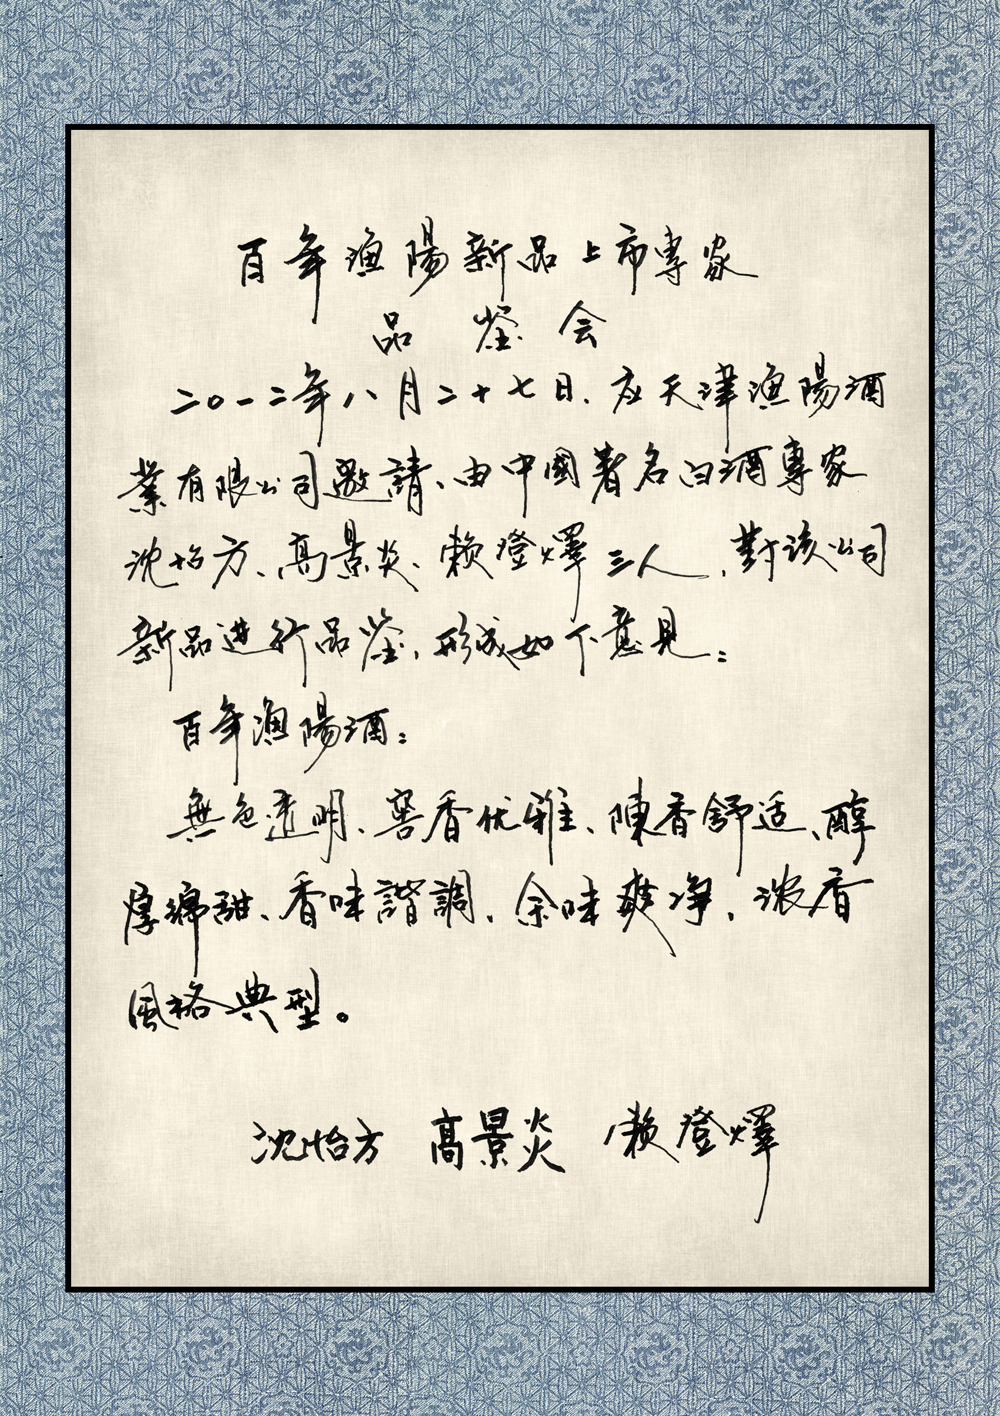 百年漁陽新品上市專家
品鉴会
二〇一二年八月二十七日、应天津漁陽酒
業有限公司邀請、由中國著名白酒專家
沈怡方、高景炎、赖登燡三人，對该公司
新品进行品鉴，形成如下意見：
百年漁陽酒：
無色透明、窖香优雅、陳香舒适、醇
厚绵甜、香味諧調、余味爽净，浓香
風格典型。
沈怡方 高景炎 赖登燡